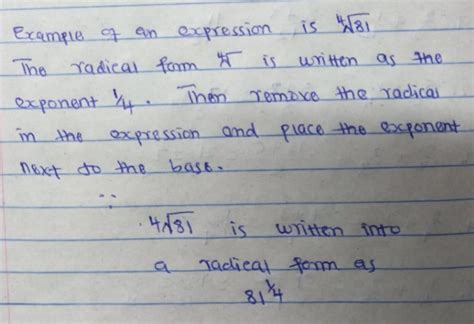 Example of an expression is ∜81
The radical form ∜ is written as the
exponent 1/4. Then remove the radical
in the expression and place the exponent
next to the base.
∵
4√81 is written into
a radical form as
81^1/4